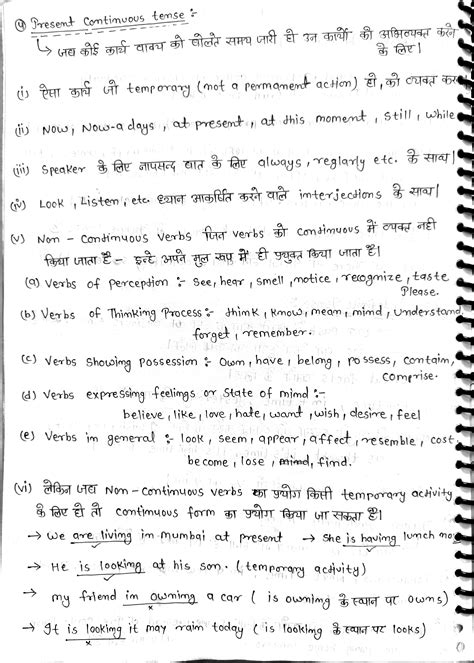 ④ Present Continuous tense :-
↳ जब कोई कार्य वाक्य को बोलते समय जारी हो उन कार्यों की अभिव्यक्त करने
के लिए।
(i) ऐसा कार्य जो temporary (not a permanent action) हो, को व्यक्त कर
(ii) Now, Now-a days, at present, at this moment, Still, While
(iii) Speaker के लिए नापसन्द बात के लिए always, reglarly etc. के साथ।
(iv) Look, Listen, etc. ध्यान आकर्षित करने वाले interjections के साथ।
(v) Non - Continuous verbs जिन verbs को Continuous में व्यक्त नही
किया जाता है - इन्हे अपने मुल रूप में ही प्रयुक्त किया जाता है।
(a) Verbs of Perception :- See, hear, smell, notice, recognize, taste
Please.
(b) Verbs of Thinking Process :- think, know, mean, mind, understand
forget, remember.
(c) Verbs Showing Possession :- Own, have, belong, possess, contain,
Comprise.
(d) Verbs expressing feelings or State of mind :-
believe, like, love, hate, want, wish, desire, feel
(e) Verbs in general :- look, seem, appear, affect, resemble, cost
become, lose, mind, find.
(vi) लेकिन जब Non-Continuous verbs का प्रयोग किसी temporary activity
के लिए हो तो Continuous form का प्रयोग किया जा सकता है।
→ We are living in Mumbai at present → She is having lunch now
→ He is looking at his son. (temporary activity)
→ my friend in owning a car ( is owning के स्थान पर owns)
→ It is looking it may rain today ( is looking के स्थान पर looks)